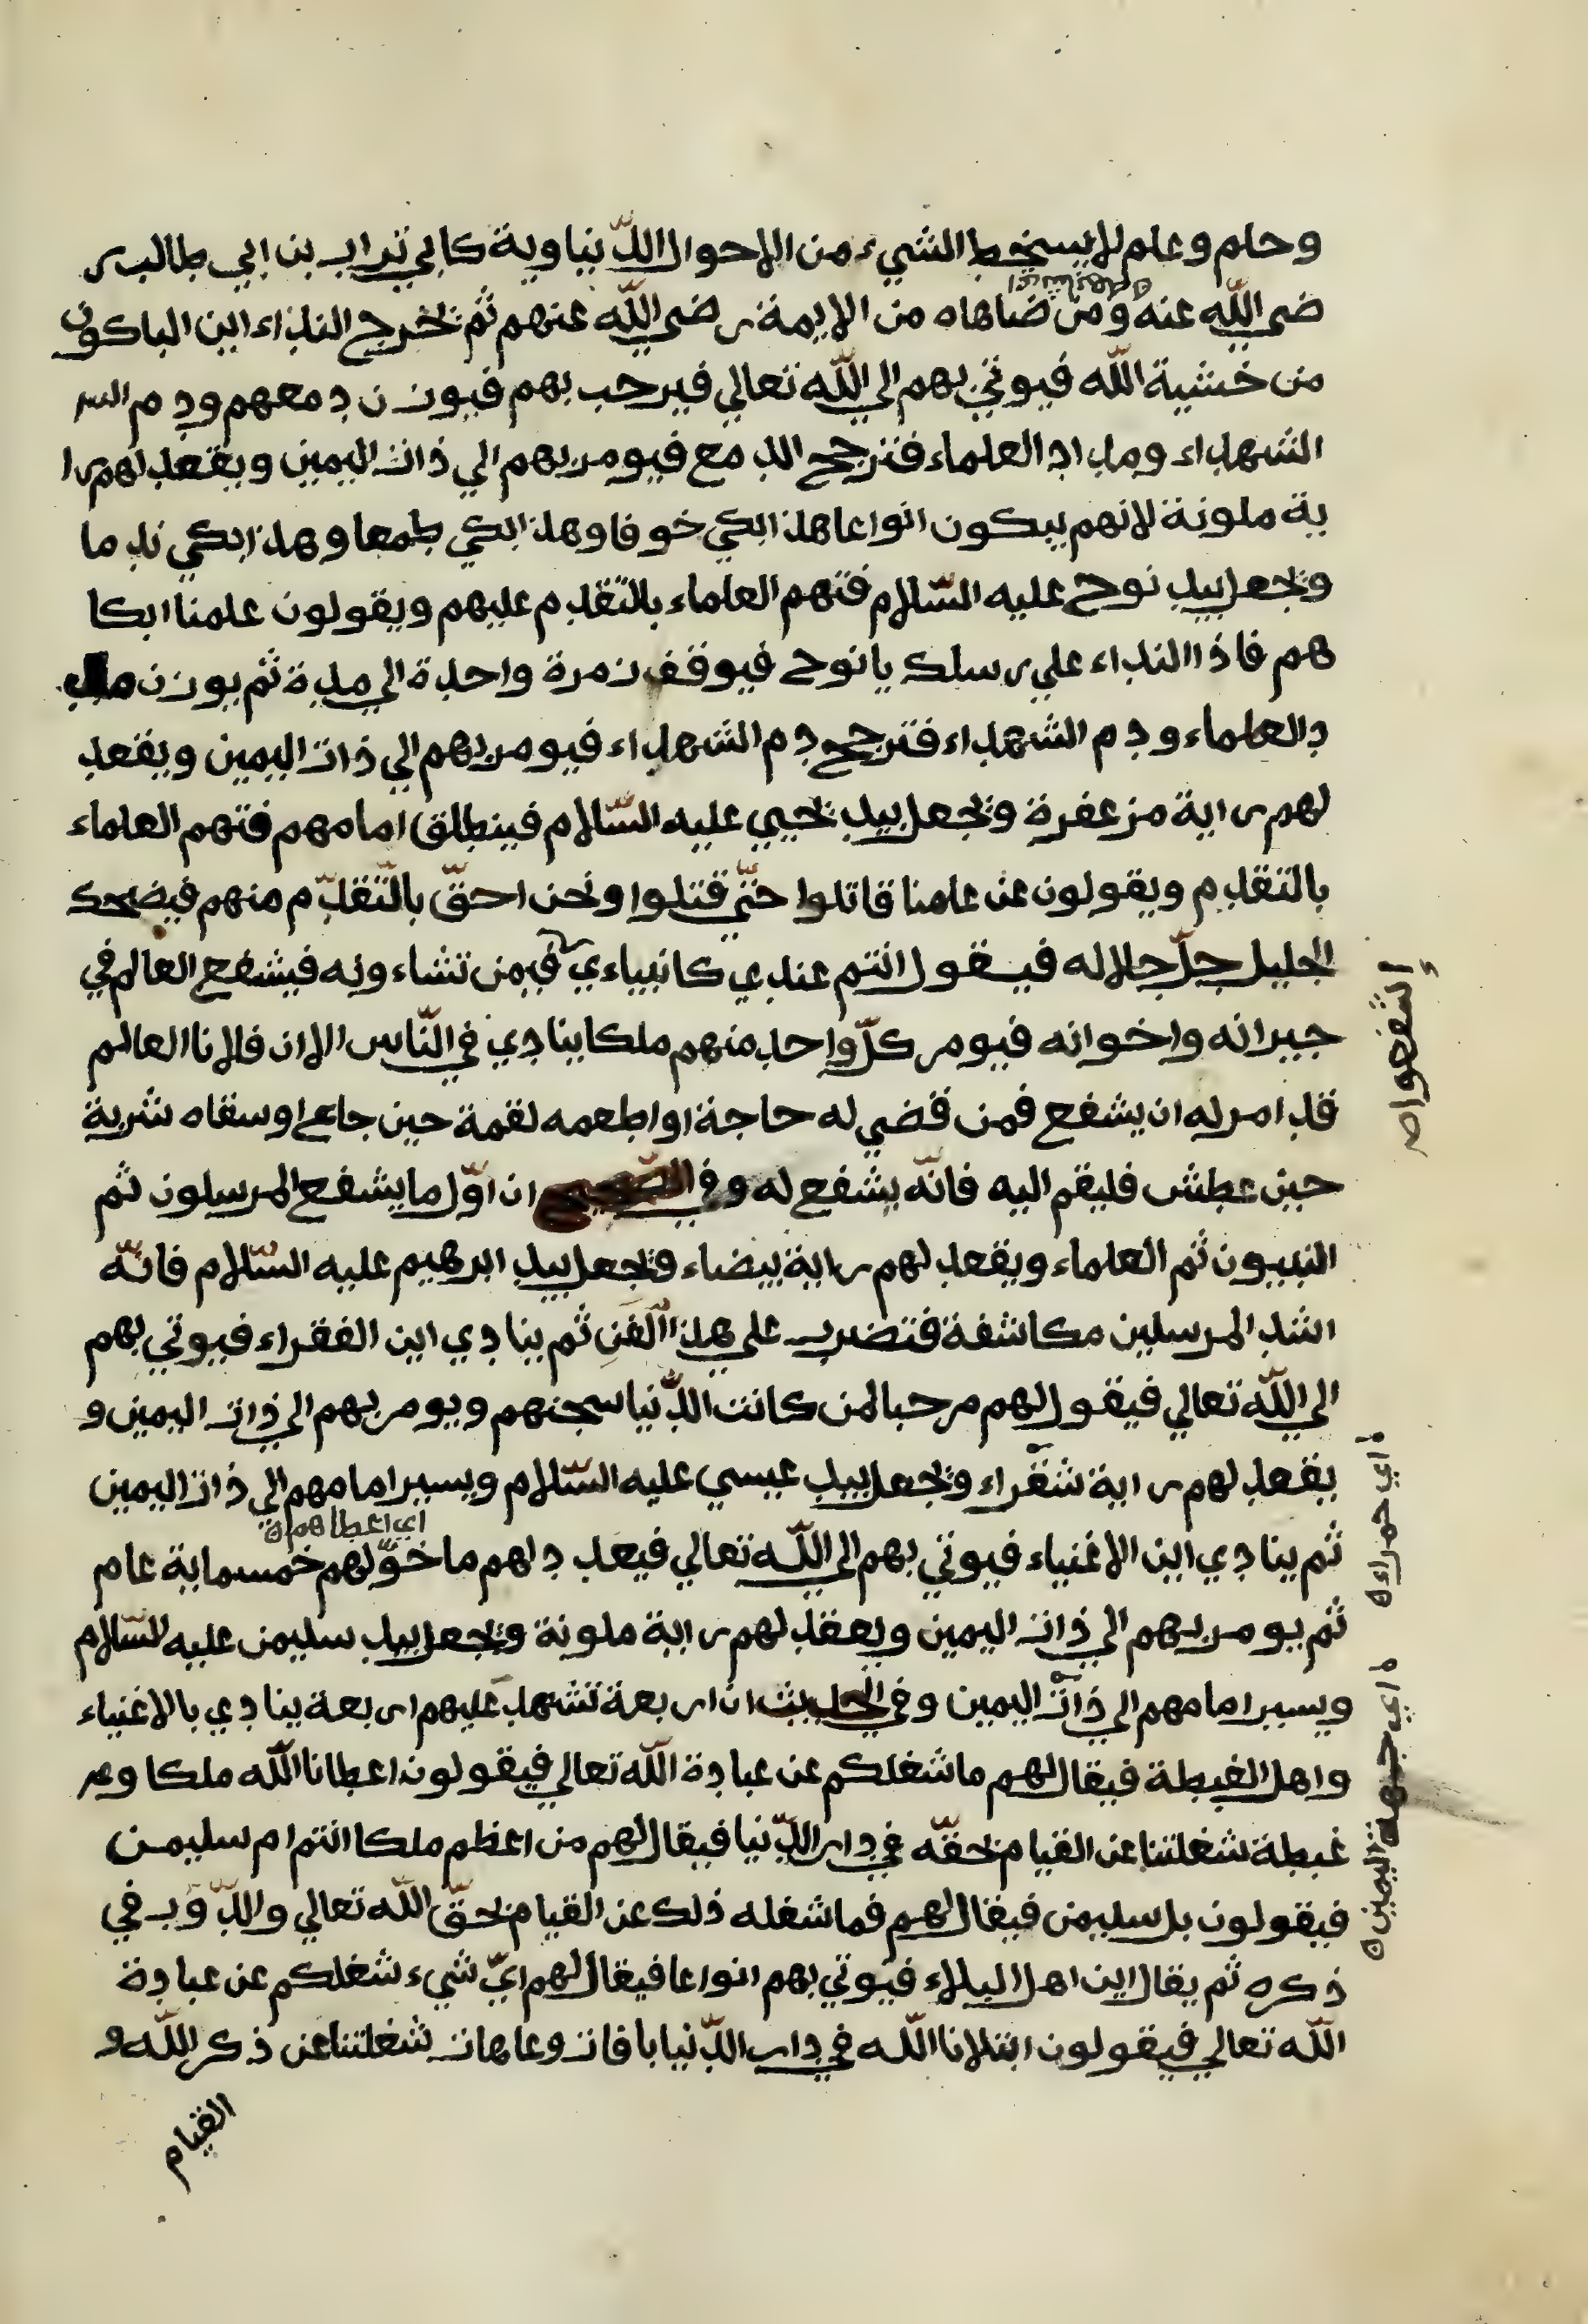 وحلم وعلم لا يسخط الشيء من الاحوال الدّنياوية كابي تراب بن ابي طالب ر
ضي اللّه عنه ومن ضاهاه من الايمة رضي اللّه عنهم ثم يخرج النداء اين الباكون
من خشية اللّه فيوتي بهم الي اللّه تعالي فيرحب بهم فيوزن دمعهم ودم
الشهداء ومداد العلماء فترجح الدمع فيومر بهم الي ذات اليمين ويقعد لهم را
ية ملونة لانهم يبكون انواعا هذا بكي خوفا وهذا بكي طمعا وهذا بكي ندما
وتجعل بيد نوح عليه السّلام فتهم العلماء بالتقدم عليهم ويقولون علمنا ابكا
هم فاذا النداء علي رسلك يا نوح فيوقف زمرة واحدة الي مدة ثم يوزن مدا
د العلماء ودم الشهداء فترجح دم الشهداء فيومر بهم الي ذات اليمين ويقعد
لهم راية مزعفرة وتجعل بيد يحيي عليه السّلام فينطلق امامهم فتهم العلماء
بالتقدم ويقولون عن علمنا قاتلوا حتّي قتلوا ونحن احقّ بالتّقدّم منهم فيضحك
الجليل جلّ جلاله فيقول انتم عندي كانبياءي فيمن تشاءونه فيشفع العالم في
جيرانه واخوانه فيومر كلّ واحد منهم ملكا ينادي في النّاس الا ان فلانا العالم
قد امر له ان يشفع فمن قضي له حاجة او اطعمه لقمة حين جاع او سقاه شربة
حين عطش فليقم اليه فانّه يشفع له وفي الصّحيح ان اوّل ما يشفع المرسلون ثم
النبيون ثم العلماء ويقعد لهم راية بيضاء وتجعل بيد ابرهيم عليه السّلام فانّه
اشد المرسلين مكاشفة فتضرب علي هذا الفن ثم ينادي اين الفقراء فيوتي بهم
الي اللّه تعالي فيقول لهم مرحبا لمن كانت الدّنيا سجنهم ويومر بهم الي ذات اليمين و
يقعد لهم راية شقراء وتجعل بيد عيسي عليه السّلام ويسير امامهم الي ذات اليمين
اي اعطاهم
ثم ينادي اين الاغنياء فيوتي بهم الي اللّه تعالي فيعدد لهم ما خوّلهم خمسماية عام
ثم يومر بهم الي ذات اليمين ويعقد لهم راية ملونة وتجعل بيد سليمن عليه السّلام
ويسير امامهم الي ذات اليمين وفي الحديث ان اربعة تشهد عليهم اربعة ينادي بالاغنياء
واهل الغبطة فيقال لهم ما شغلكم عن عبادة اللّه تعالي فيقولون اعطانا اللّه ملكا و
غبطة شغلتنا عن القيام بحقّه في دار الدّنيا فيقال لهم من اعظم ملكا انتم ام سليمن
فيقولون بل سليمن فيقال لهم فما شغله ذلك عن القيام بحقّ اللّه تعالي والدّوب في
ذكره ثم يقال اين اهل البلاء فيوتي بهم انواعا فيقال لهم ايّ شيء شغلكم عن عبادة
اللّه تعالي فيقولون ابتلانا اللّه في دار الدّنيا بافات وعاهات شغلتنا عن ذكر اللّه و
القيام
اي حمراء
اي جهة اليمين